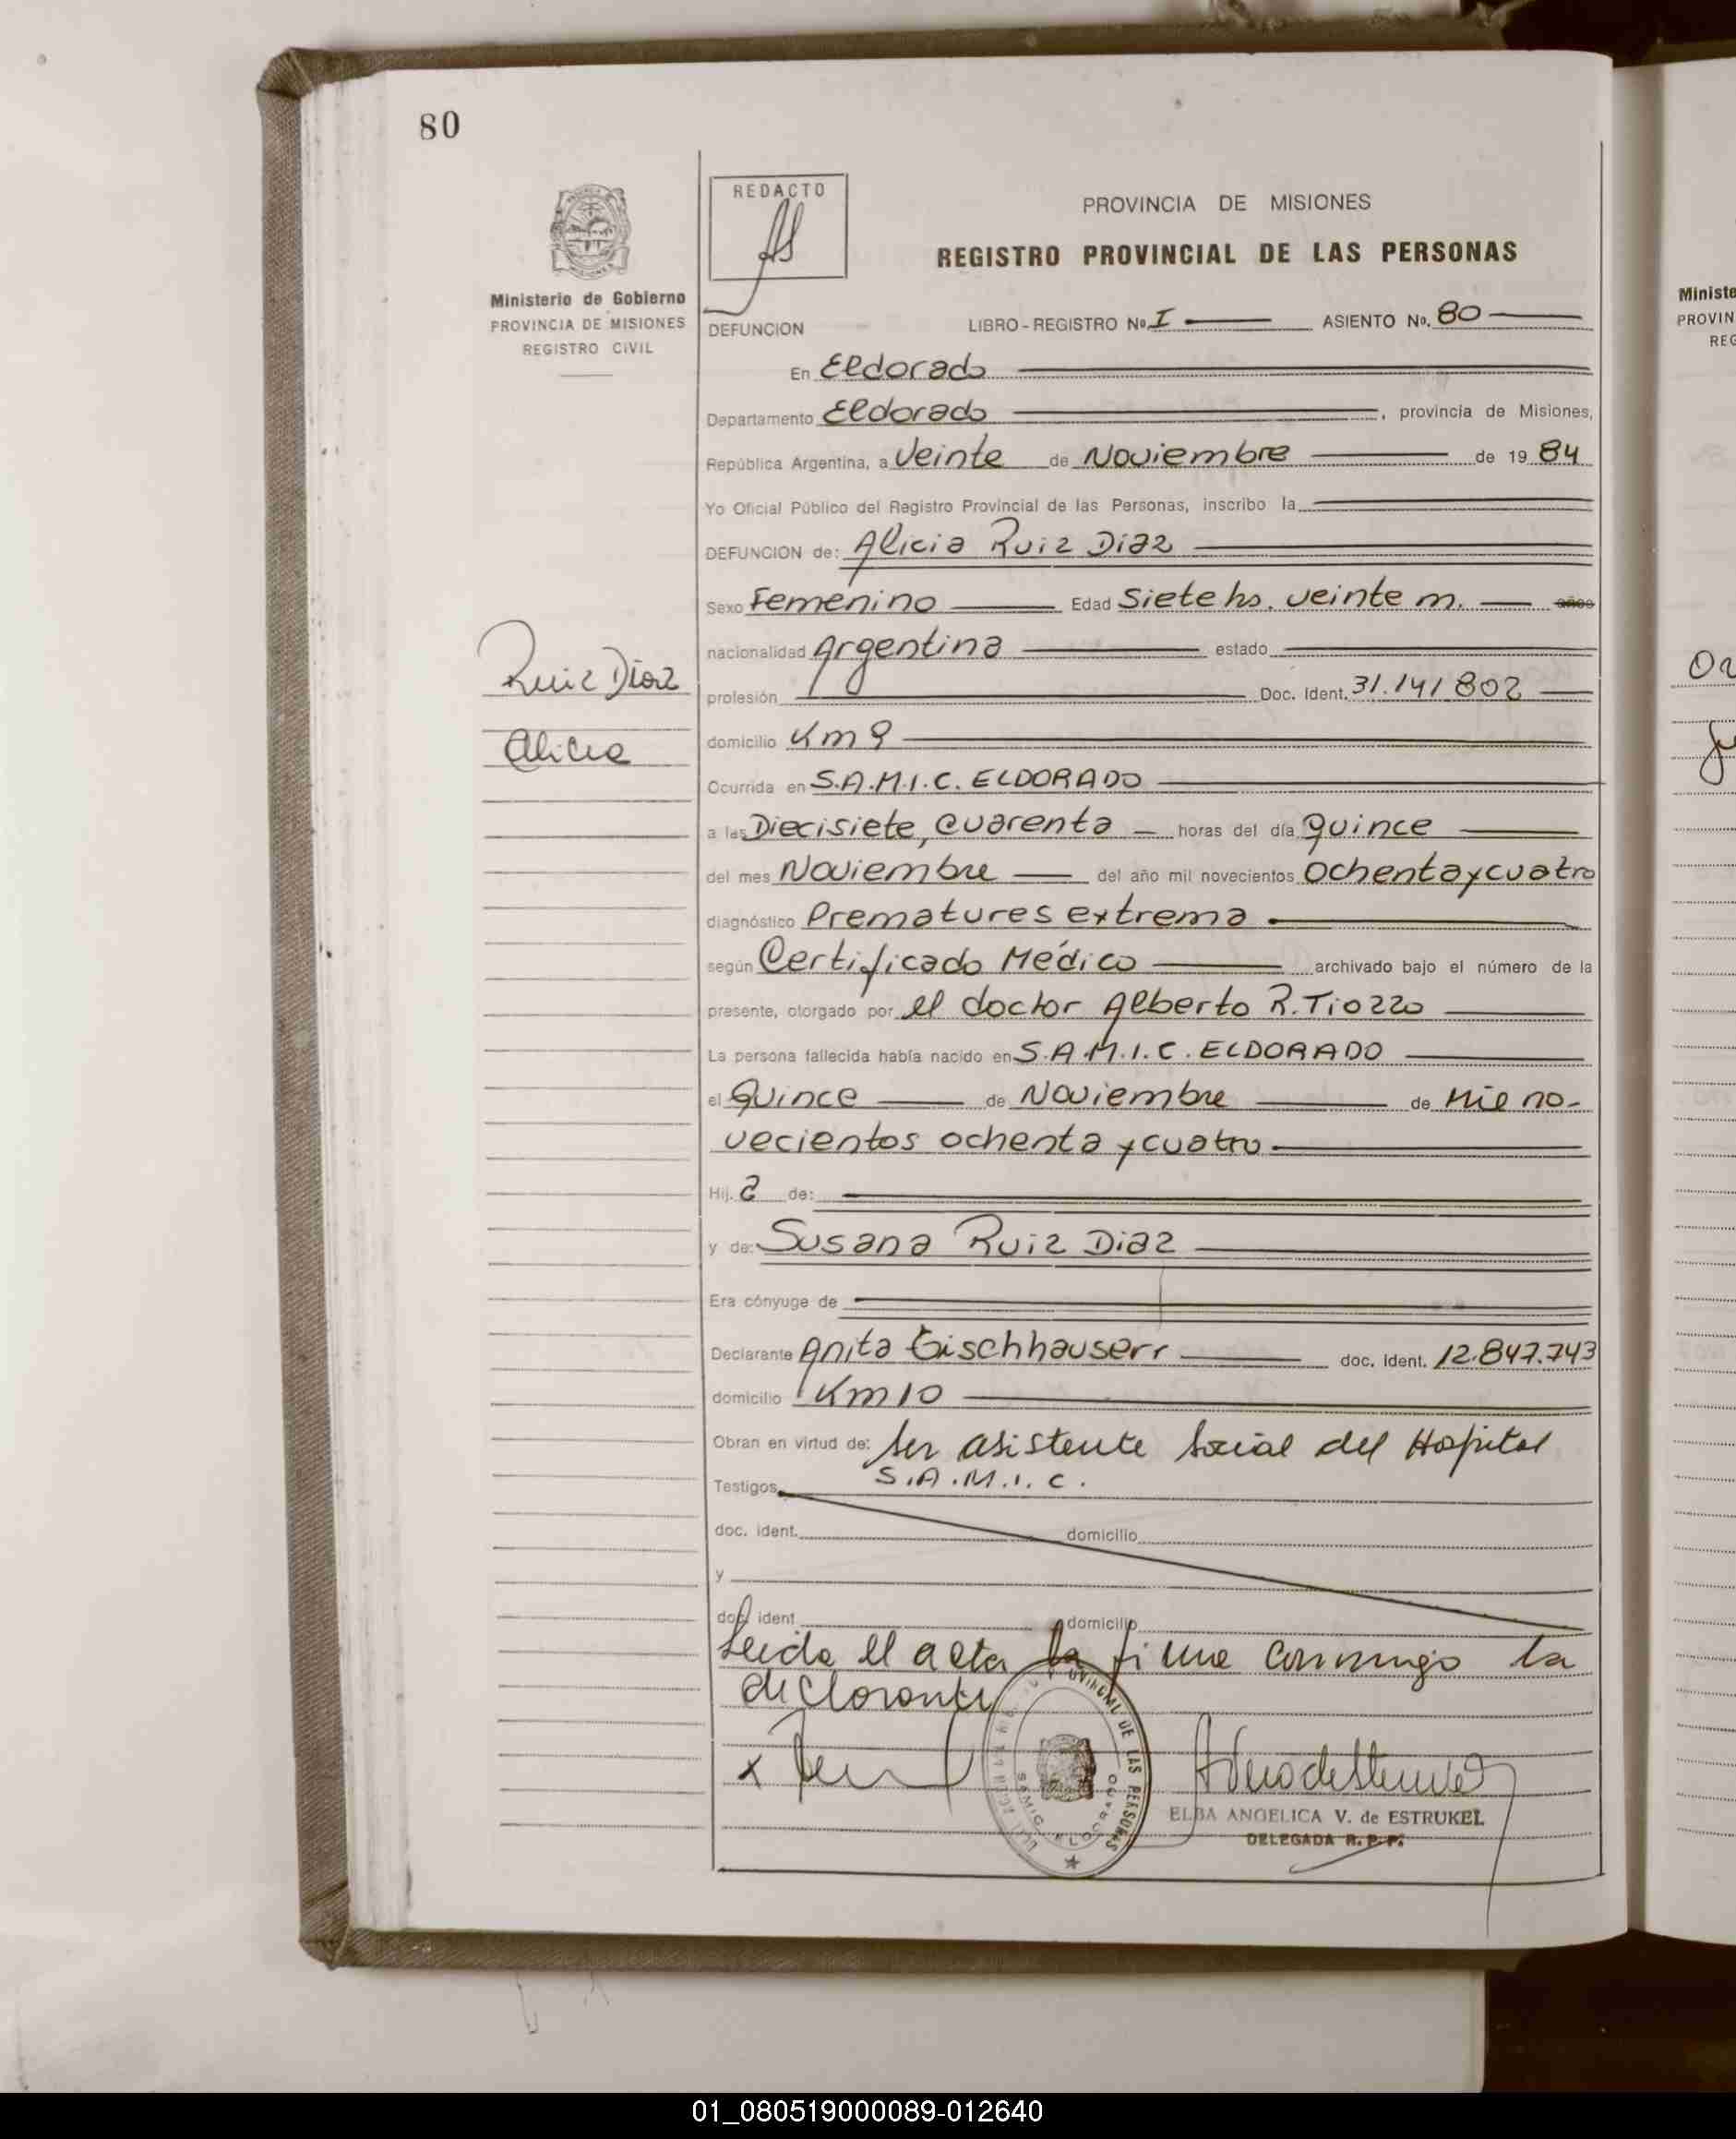 80
REDACTO
PROVINCIA DE MISIONES
REGISTRO PROVINCIAL DE LAS PERSONAS
Ministerio de Gobierno
PROVINCIA DE MISIONES
REGISTRO CIVIL
DEFUNCION LIBRO - REGISTRO No. I ASIENTO No. 80
En Eldorado
Departamento Eldorado, provincia de Misiones,
República Argentina, a Veinte de Noviembre de 19 84
Yo Oficial Público del Registro Provincial de las Personas, inscribo la
DEFUNCION de: Alicia Ruiz Diaz
Sexo Femenino Edad Siete hs. veinte m. años
nacionalidad Argentina estado
Ruiz Diaz
profesión Doc. Ident. 31.141802
Alicia
domicilio Km 9
Ocurrida en S.A.M.I.C. ELDORADO
a las Diecisiete, cuarenta horas del día quince
del mes Noviembre del año mil novecientos ochenta y cuatro
diagnóstico Prematures extrema
según Certificado Médico archivado bajo el número de la
presente, otorgado por el doctor Alberto R. Tiozzo
La persona fallecida había nacido en S.A.M.I.C. ELDORADO
el Quince de Noviembre de Mil no-
vecientos ochenta y cuatro
Hij. a de:
y de: Susana Ruiz Diaz
Era cónyuge de
Declarante Anita Gischhauserr doc. Ident. 12.847.743
domicilio Km 10
Obran en virtud de: ser asistente social del Hospital
S.A.M.I.C.
Testigos
doc. ident. domicilio
y
doc. ident domicilio
Leida el acta la firma conmigo la
declarante
ELBA ANGELICA V. de ESTRUKEL
DELEGADA R. P. P.
Ministe
PROVIN
REG
01_080519000089-012640